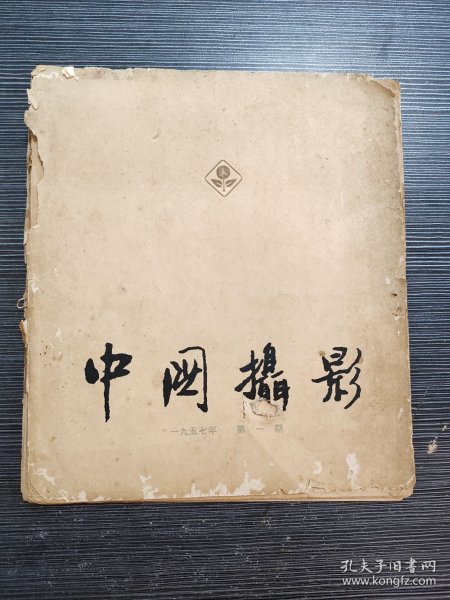 中国攝影
一九五七年 第一期
孔夫子旧书网
www.kongfz.com